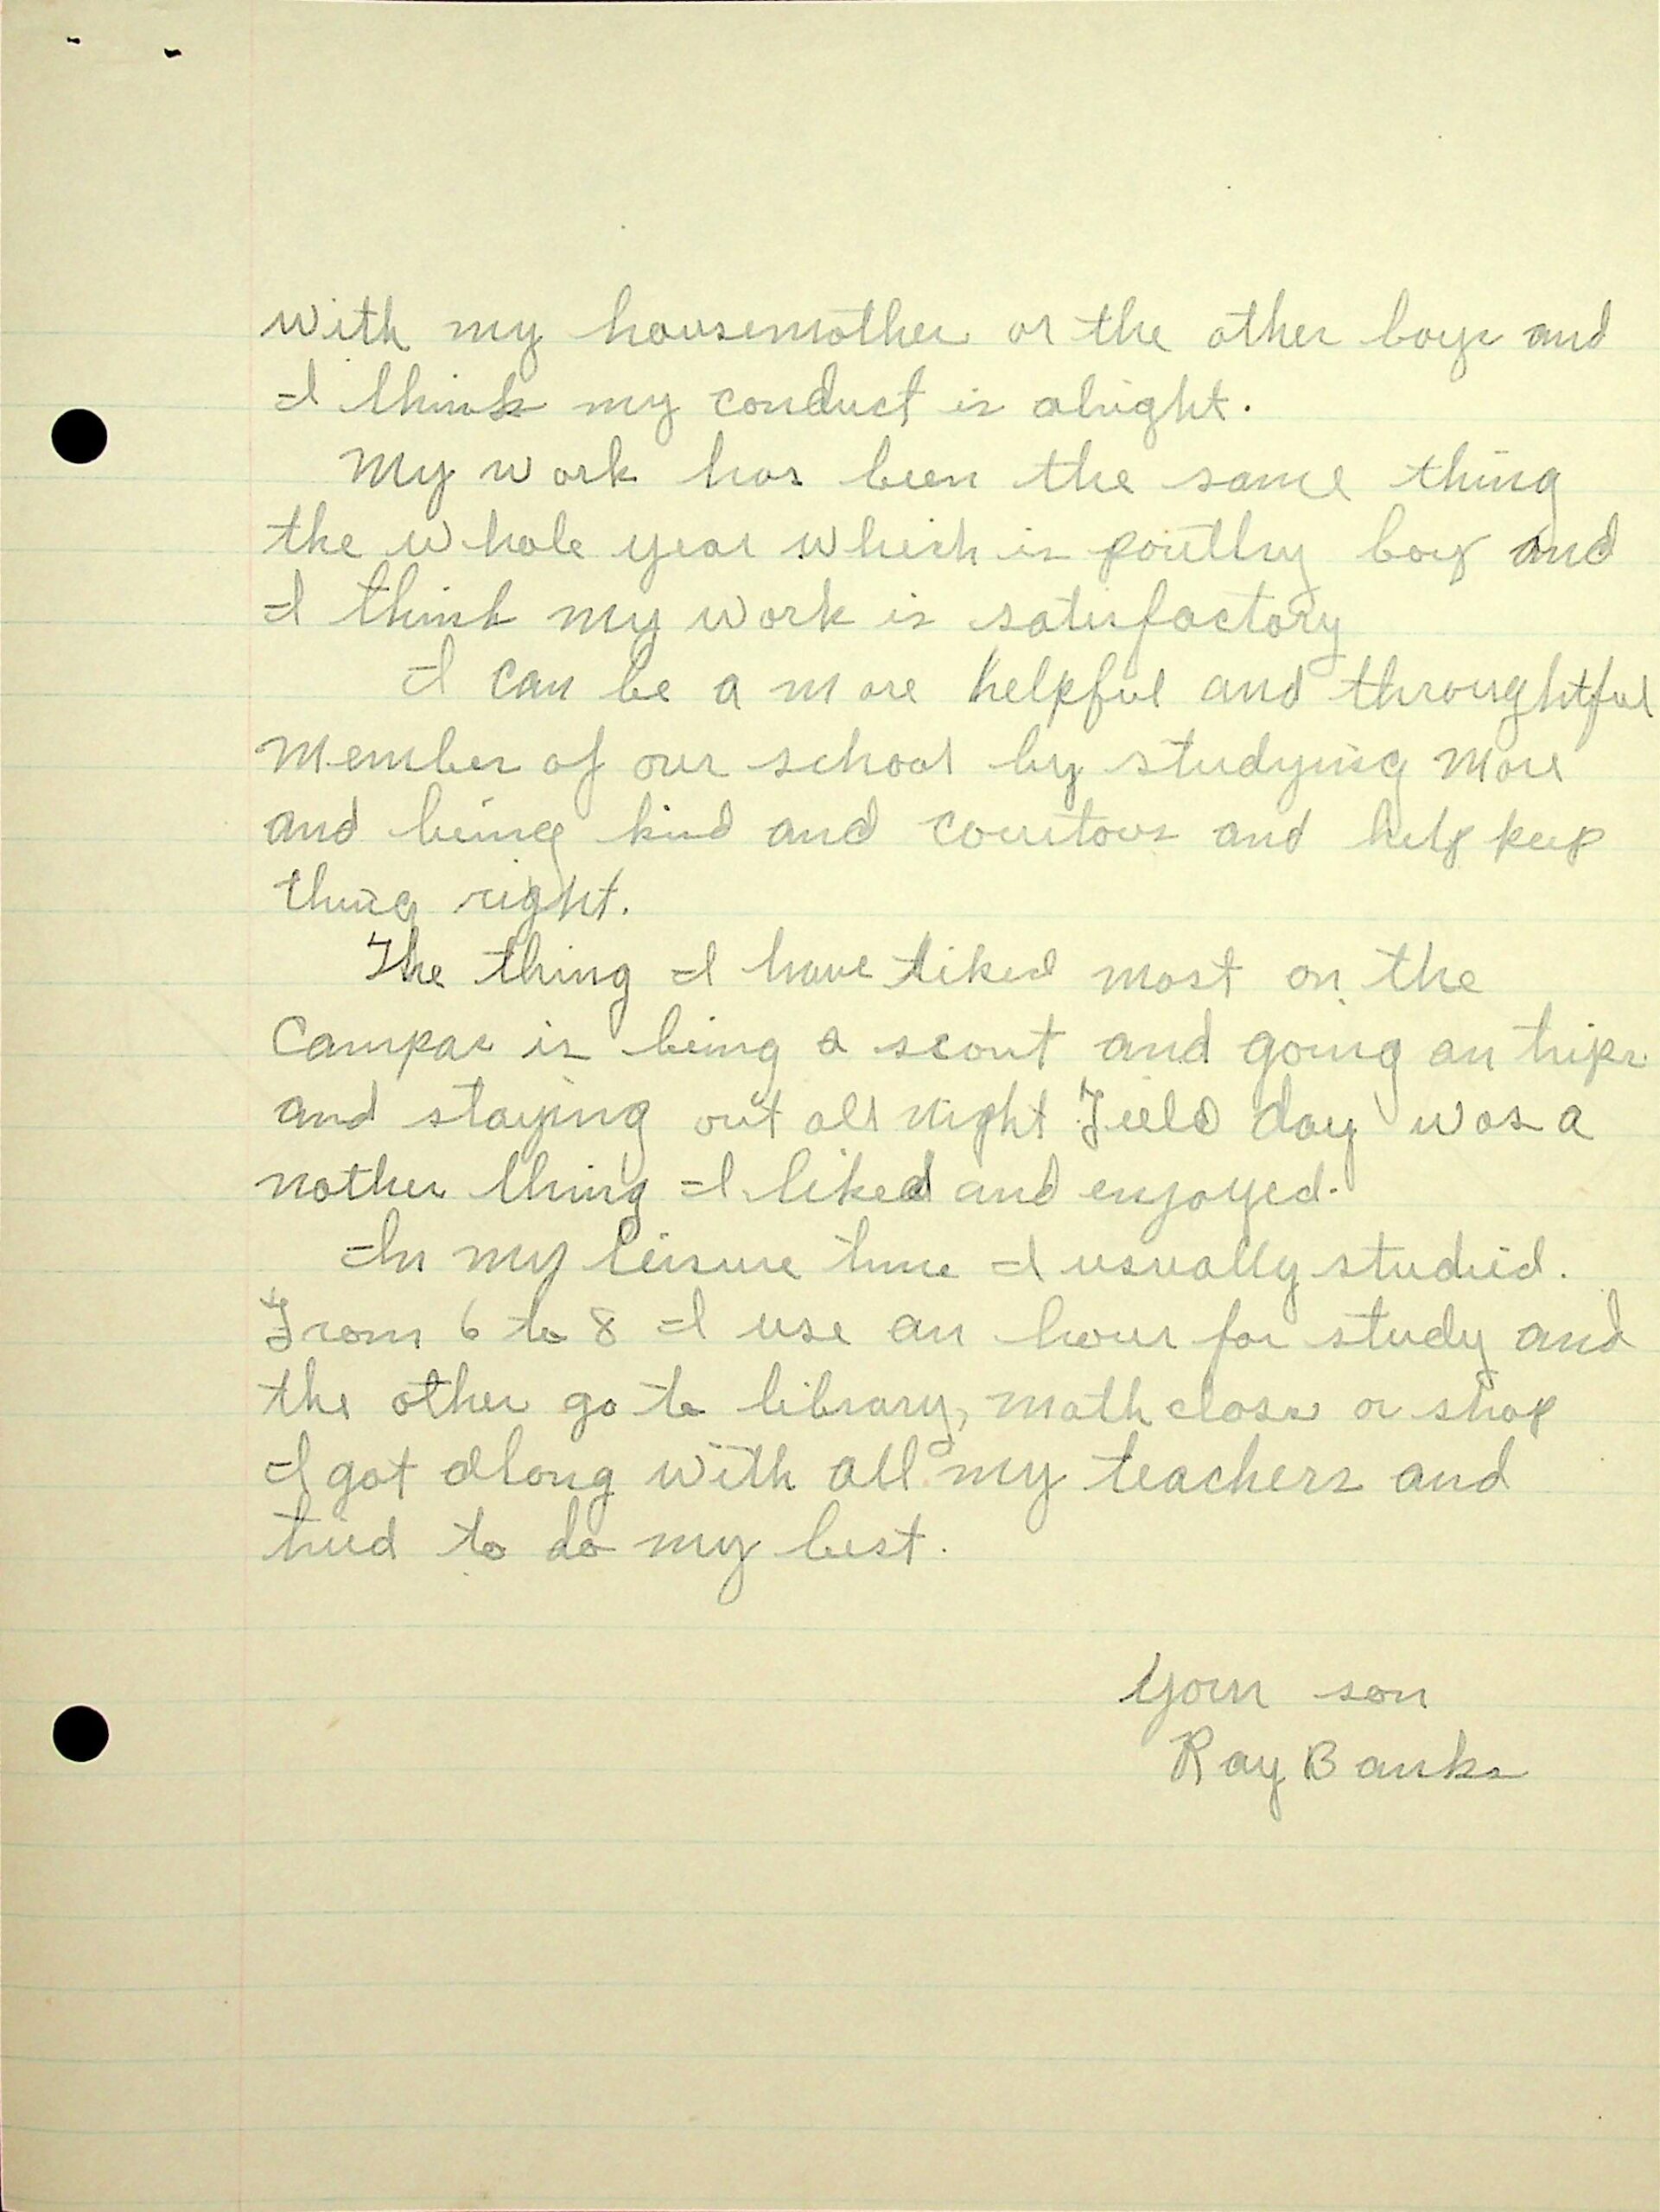 with my housemother or the other boys and
I think my conduct is alright.
My work has been the same thing
the whole year which is poultry boy and
I think my work is satisfactory
I can be a more helpful and throughtful
member of our school by studying more
and being kind and courtous and help keep
thing right.
The thing I have liked most on the
Campas is being a scout and going on trips
and staying out all night Field day was a
nother thing I liked and enjoyed.
In my leisure time I usually studied.
From 6 to 8 I use an hour for study and
the other go to library, math class or shop
I got along with all my teachers and
tried to do my best.
Your son
Ray Banks